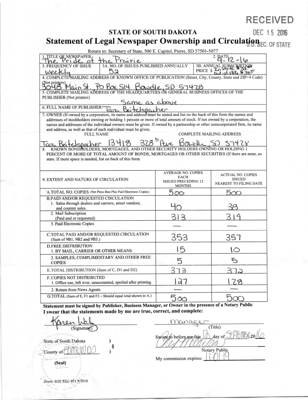 RECEIVED
DEC 15 2016
S.D. SEC. OF STATE
STATE OF SOUTH DAKOTA
Statement of Legal Newspaper Ownership and Circulation
Return to: Secretary of State, 500 E. Capitol, Pierre, SD 57501-5077
1. TITLE OF NEWSPAPER
The Pride of the Prairie
2. DATE
9-12-16
3. FREQUENCY OF ISSUE
Weekly
3A. NO. OF ISSUES PUBLISHED ANNUALLY
52
3B. ANNUAL SUBSCRIPTION PRICE
4. COMPLETE MAILING ADDRESS OF KNOWN OFFICE OF PUBLICATION (Street, City, County, State and ZIP+4 Code) (Not printers)
3048 Main St PO Box 514 Bowdle SD 57428
5. COMPLETE MAILING ADDRESS OF THE HEADQUARTERS OR GENERAL BUSINESS OFFICES OF THE PUBLISHER (Not printers)
Same as above
6. FULL NAME OF PUBLISHER
7. OWNER (If owned by a corporation, its name and address must be stated and list on the back of this form the names and addresses of stockholders owning or holding 1 percent or more of total amount of stock. If not owned by a corporation, the names and addresses of the individual owners must be given. If owned by a partnership or other unincorporated firm, its name and address, as well as that of each individual must be given.
FULL NAME
COMPLETE MAILING ADDRESS
8. KNOWN BONDHOLDERS, MORTGAGEES, AND OTHER SECURITY HOLDERS OWNING OR HOLDING 1 PERCENT OR MORE OF TOTAL AMOUNT OF BONDS, MORTGAGES OR OTHER SECURITIES (If there are none, so state. If more space is needed, list on back of this form.
9. EXTENT AND NATURE OF CIRCULATION
AVERAGE NO. COPIES EACH ISSUE PRECEDING 12 MONTHS
ACTUAL NO. COPIES ISSUED NEAREST TO FILING DATE
A. TOTAL NO. COPIES (Net Press Run Plus Paid Electronic Copies) 500 500
B. PAID AND/OR REQUESTED CIRCULATION
1. Sales through dealers and carriers, street vendors, and counter sales 40 38
2. Mail Subscription (Paid and or requested) 313 319
3. Paid Electronic Copies
C. TOTAL PAID AND/OR REQUESTED CIRCULATION (Sum of 9B1, 9B2 and 9B3.) 353 357
D. FREE DISTRIBUTION
1. BY MAIL, CARRIER OR OTHER MEANS 15 10
2. SAMPLES, COMPLIMENTARY AND OTHER FREE COPIES 5 5
E. TOTAL DISTRIBUTION (Sum of C, D1 and D2) 373 372
F. COPIES NOT DISTRIBUTED
1. Office use, left over, unaccounted, spoiled after printing 127 128
2. Return from News Agents
G. TOTAL (Sum of E, F1 and F2 - Should equal total shown in A.) 500 500
Statement must be signed by Publisher, Business Manager, or Owner in the presence of a Notary Public
I swear that the statements made by me are true, correct, and complete:
Manager
(Signature)
(Title)
State of South Dakota
County of
Notary Public
My commission expires:
(Seal)